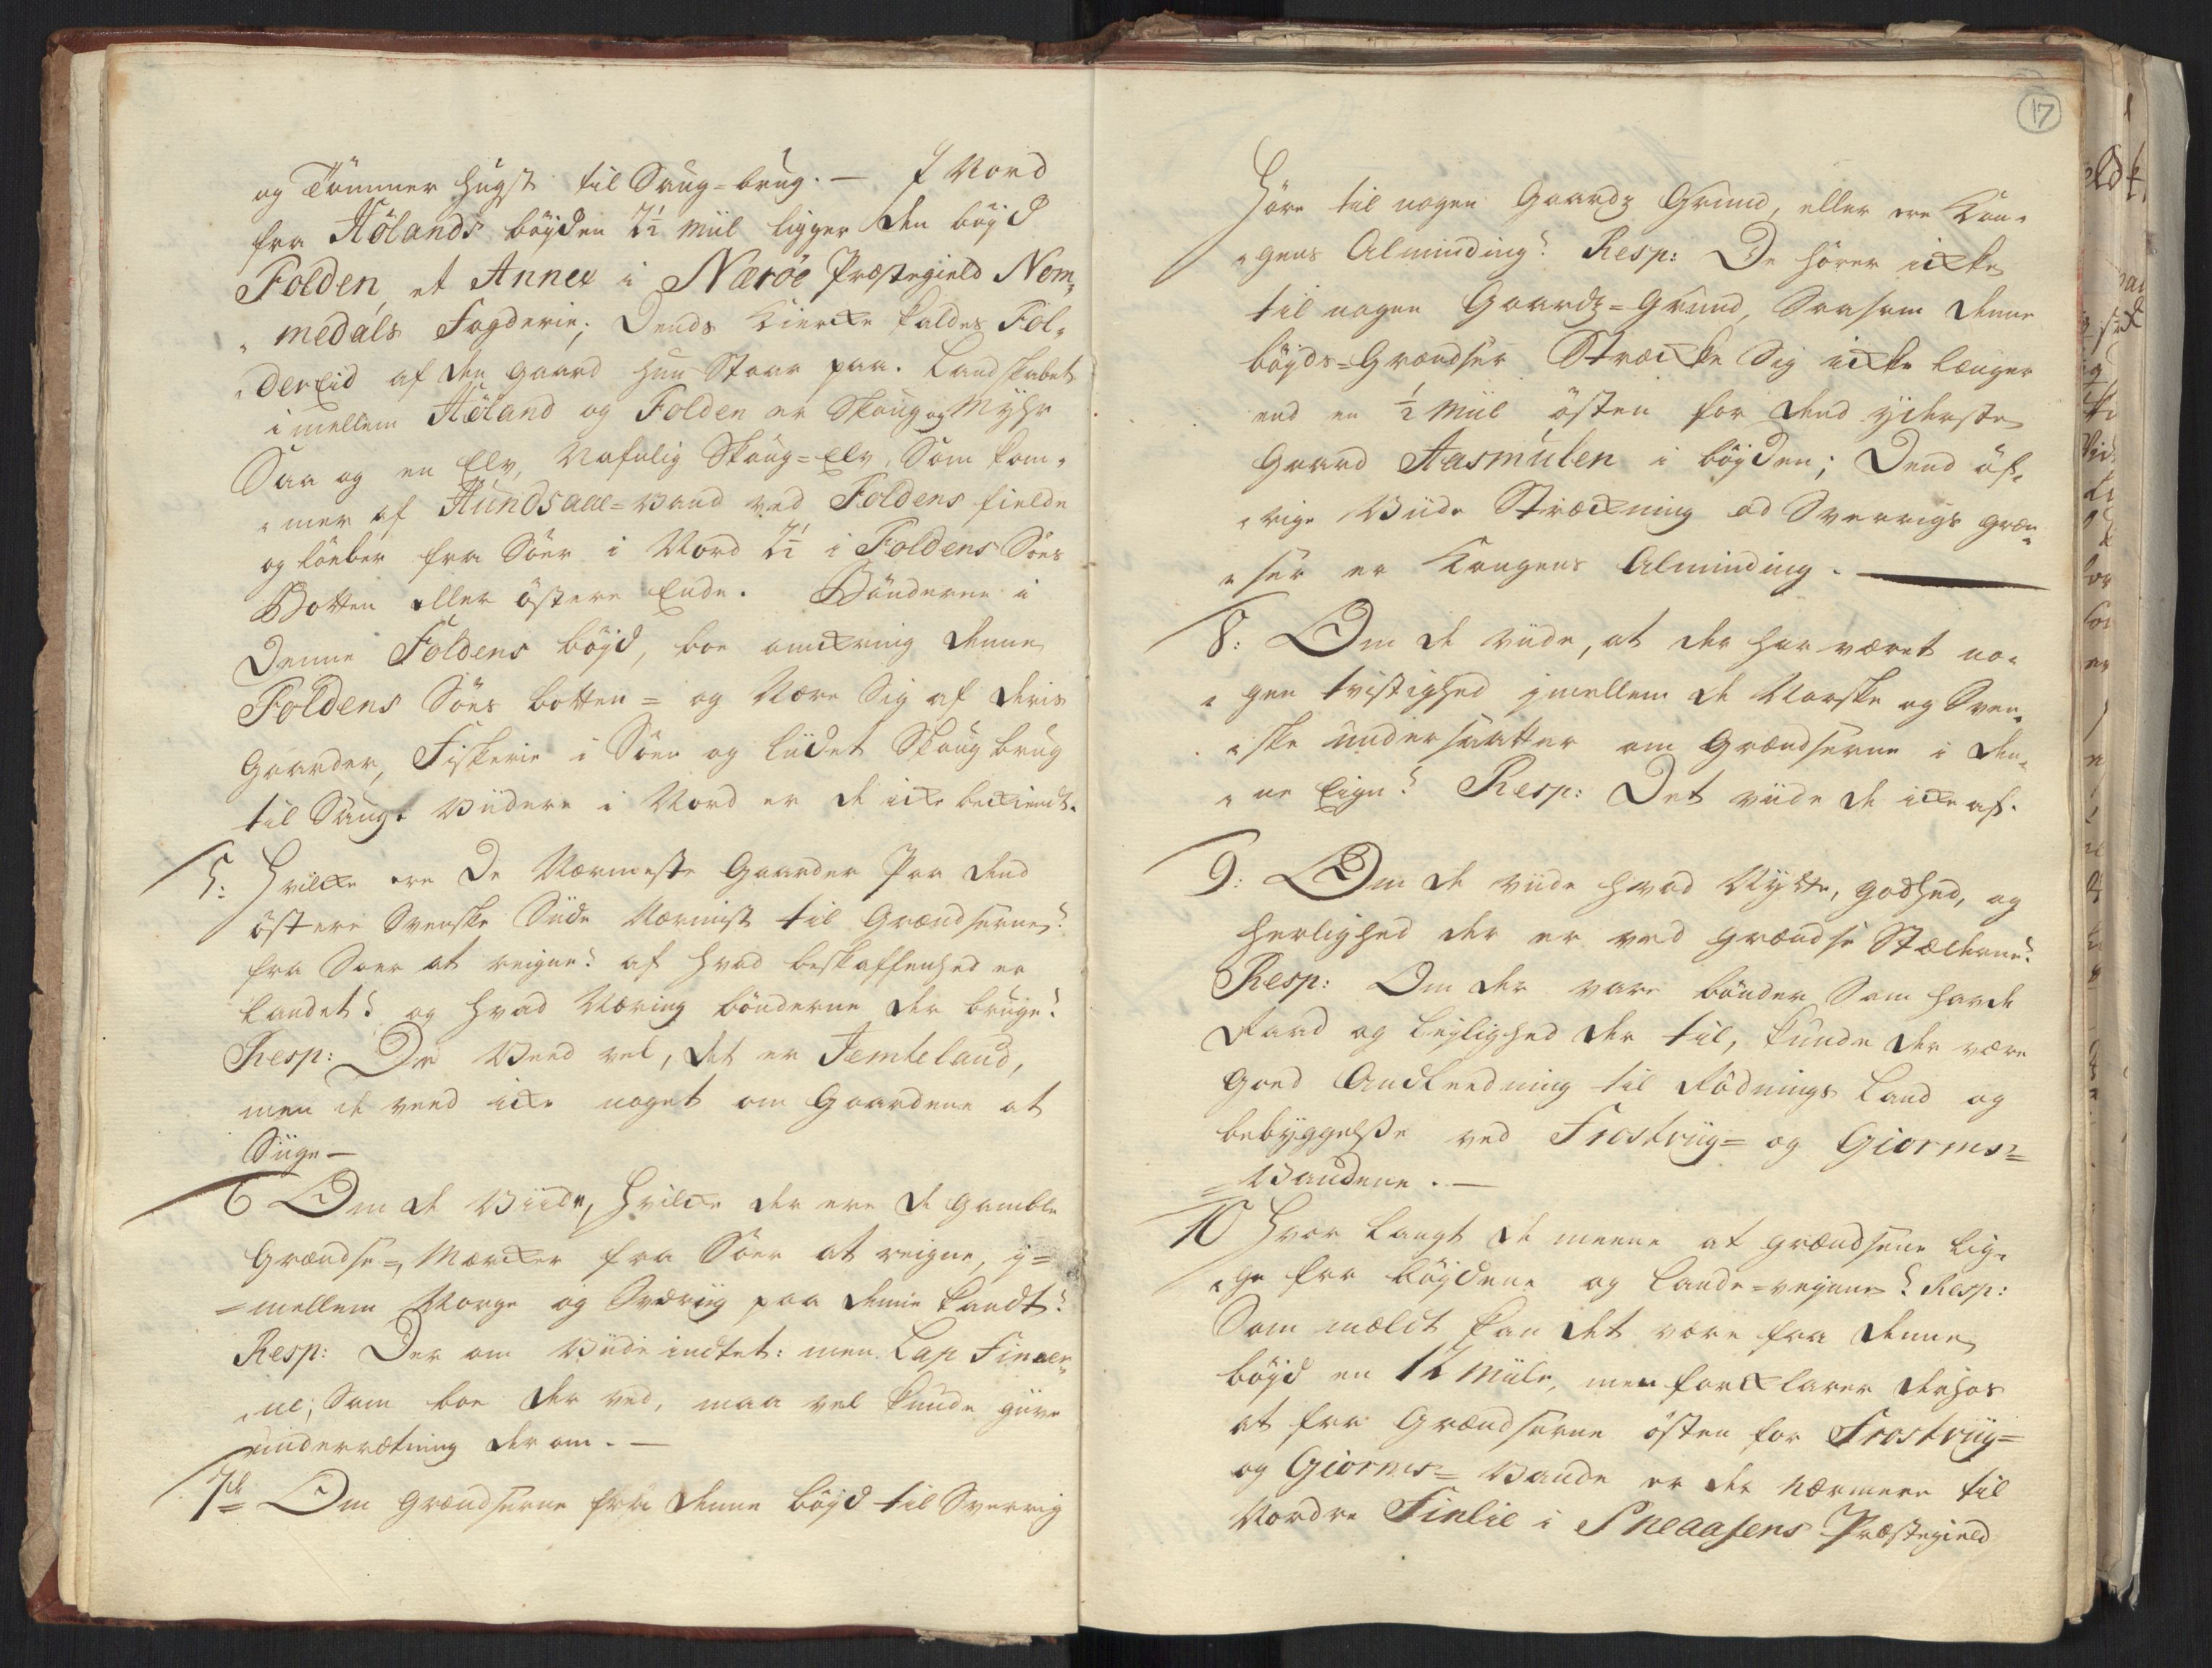 og Tömmer hugst til Saug-brug. — I Nord
fra Hölands böyden 2½ Miil ligger den böyd
Folden, et Annex i Næröe Præstegield Nom„
„medals Fogderie; Dends Kiercke kaldes Fol„
„dereid af den gaard hun Staar paa. Landskabet
imellem Höland og Folden er Skoug og Myhr
Saa og en Elv, Skoug-Elv, Som kom„
„mer af Hundsaae-Vand ved Foldens fielde
og löeber fra Söer i Nord 2½ i Foldens Söes
Botten eller östere Ende. Bönderne i
Denne Foldens böyd, boe omkring denne
Foldens Söes botten= og Nære Sig af deris
Gaarder, Fiskerie i Söen og liidet Skoug brug
til Saug. Viidere i Nord er de icke bekiendt.
5: Hvilcke ere De Nærmeste Gaarder Paa dend
östere Svenske Siide Nærmist til Grændserne?
fra Söer at reigne? af hvad beskaffenhed er
Landet? og hvad Næring bönderne der bruge?
Resp: De Veed vel, det er Jemteland,
men de veed icke noget om Gaardene at
Siige —
6 Om de Viide, hvilcke der ere de gamble
Grændse-Mercker fra Söer at reigne, i=
=mellem Norge og Sverrig paa denne kandt?
Resp: Der om Viide indtet: men Lap Finner„
„ne, Som boe der ved, maa vel kunde give
underretning der om. —
7de Om Grændserne fra denne böyd til Sverrig
17
Höre til nogen Gaards Grund, eller ere Kon„
„gens Alminding? Resp: De hörer icke
til nogen Gaards-Grund, Saasom denne
böyds-Grændser Strecke Sig icke længer
end en ½ Miil östen for dend yderste
Gaard Aasmulen i böyden; Dend öf„
„rige Viide Streckning ad Sverrigs græn„
„ser er Kongens Alminding. —
8: Om de viide, at der har været no„
„gen tvistighed imellem de Norske og Sven„
„ske undersaatter om Grændserne i den„
„ne Eign? Resp: Det viide de icke af.
9: Om de viide hvad Nytte, godhed, og
herlighed der er ved grændse Stæderne?
Resp: Om der vare bönder Som havde
Raad og Leylighed der til, kunde der være
Goed Andleedning til Rödnings Land og
bebyggelße ved Frostviig= og Giorms=
=Vandene. —
10 Hvor Langt de meene at grændsene lig„
„ge fra böydene og Lande-veyene? Resp:
Som meldt kan det være fra denne
böyd en 12 Miile, men forklarer derhos
at fra Grændserne östen for Frostviig=
og Giorms= Vande er det nærmere til
Nordre Finlie i Sneaasens Præstegield